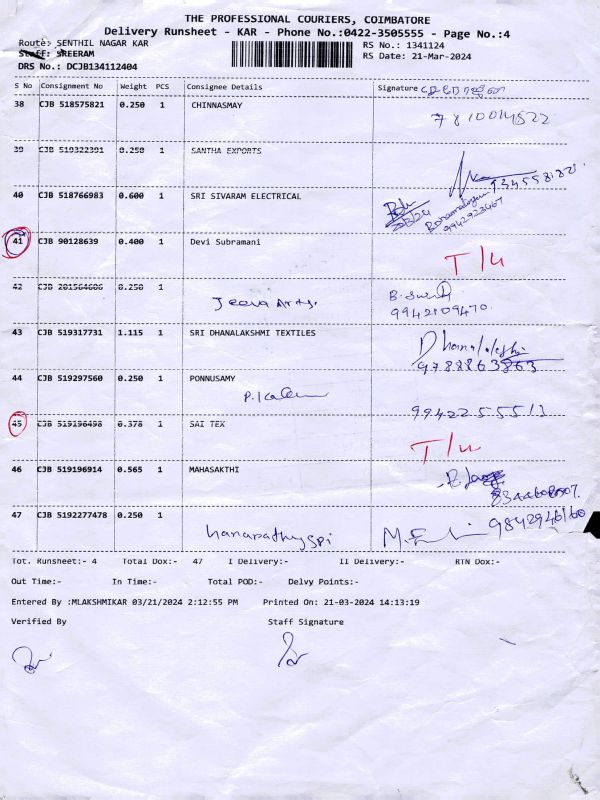 THE PROFESSIONAL COURIERS, COIMBATORE
Delivery Runsheet - KAR - Phone No.:0422-3505555 - Page No.:4
Route: SENTHIL NAGAR KAR
RS No.: 1341124
Staff: SREERAM
RS Date: 21-Mar-2024
DRS No.: DCJB134112404
S No Consignment No Weight PCS Consignee Details Signature
38 CJB 518575821 0.250 1 CHINNASMAY
7810014822
39 CJB 519322391 0.250 1 SANTHA EXPORTS
40 CJB 518766983 0.600 1 SRI SIVARAM ELECTRICAL
9942923467
41 CJB 90128639 0.400 1 Devi Subramani
T/u
42 CJB 201564606 0.250 1 Jeeva Arts.
9942109470.
43 CJB 519317731 1.115 1 SRI DHANALAKSHMI TEXTILES
9788863863
44 CJB 519297560 0.250 1 PONNUSAMY
9942255513
45 CJB 519196498 0.378 1 SAI TEX
T/u
46 CJB 519196914 0.565 1 MAHASAKTHI
47 CJB 5192277478 0.250 1
9842946160
Tot. Runsheet:- 4 Total Dox:- 47 I Delivery:- II Delivery:- RTN Dox:-
Out Time:- In Time:- Total POD:- Delvy Points:-
Entered By :MLAKSHMIKAR 03/21/2024 2:12:55 PM Printed On: 21-03-2024 14:13:19
Verified By Staff Signature